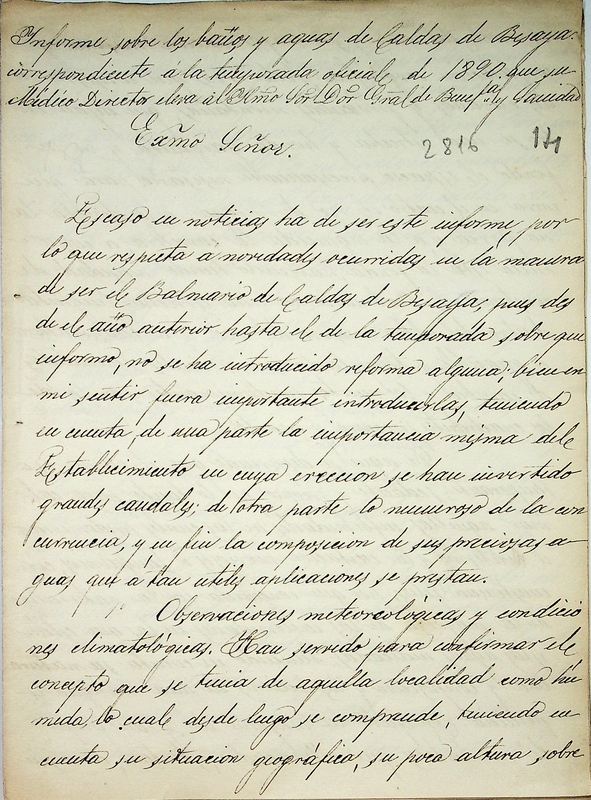 Informe sobre los baños y aguas de Caldas de Besaya.
correspondiente á la temporada oficial de 1890. que su
Médico Director eleva al Ylmo Sor Dor Gral de Benefa y Sanidad
Exmo Señor.
2816 14
Escaso en noticias ha de ser este informe, por
lo que respecta a novedades ocurridas en la manera
de ser el Balneario de Caldas de Besaya; pues des
de el año anterior hasta el de la temporada sobre que
informo, no se ha introducido reforma alguna; bien en
mi sentir fuera importante introducirlas, teniendo
en cuenta, de una parte la importancia misma del
Establecimiento en cuya ereccion se han invertido
grandes caudales; de otra parte lo numeroso de la con
currencia, y en fin la composicion de sus preciosas a-
guas, que á tan utiles aplicaciones se prestan.
Observaciones meteorológicas y condicio
nes climatológicas. Han servido para confirmar el
concepto que se tenia de aquella localidad como hú
meda, lo cual desde luego se comprende, teniendo en
cuenta su situacion geográfica, su poca altura, sobre